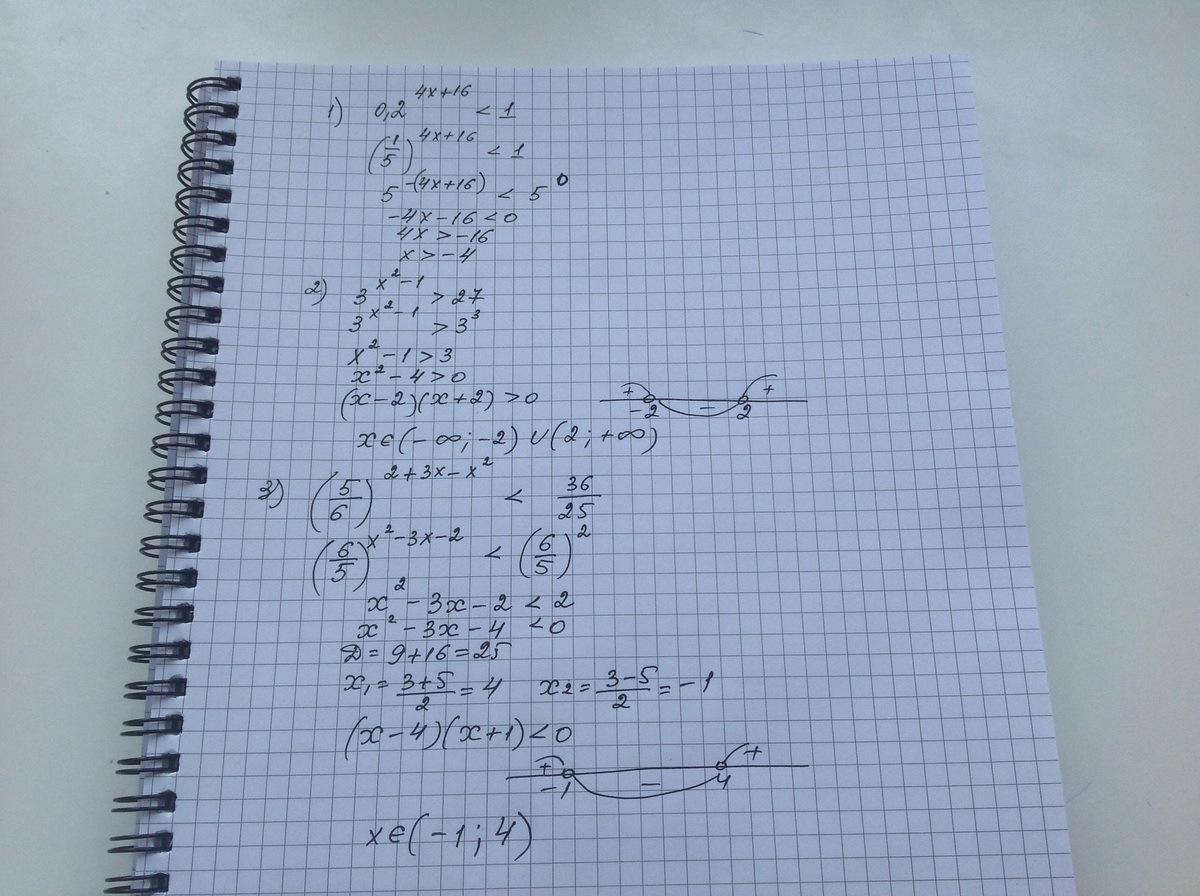 1) 0,2^(4x+16) < 1
(1/5)^(4x+16) < 1
5^(-(4x+16)) < 5^0
-4x-16<0
4x>-16
x>-4
2) 3^(x²-1) > 27
3^(x²-1) > 3³
x²-1>3
x²-4>0
(x-2)(x+2)>0
+ - +
-2 2
x∈(-∞;-2)∪(2;+∞)
3) (5/6)^(2+3x-x²) < 36/25
(6/5)^(x²-3x-2) < (6/5)²
x²-3x-2<2
x²-3x-4<0
D=9+16=25
x₁=(3+5)/2=4 x₂=(3-5)/2=-1
(x-4)(x+1)<0
+ - +
-1 4
x∈(-1;4)